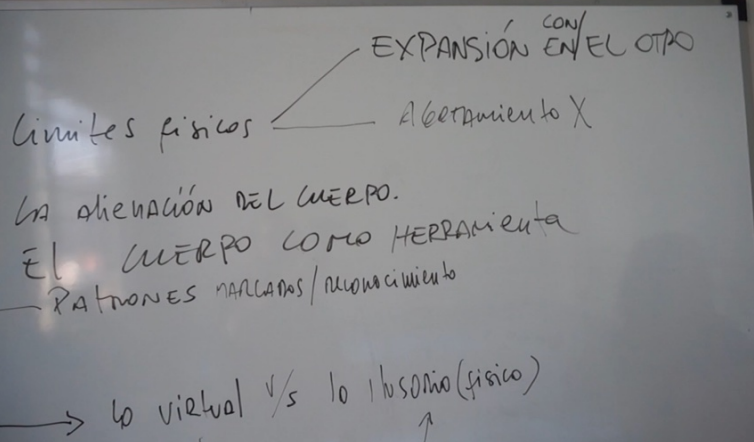 CON/
EXPANSIÓN EN EL OTRO
Limites fisicos
X
LA AlieNACIÓN DEL CUERPO.
El CUERPO COMO HERRAMIENTA
PATRONES MARCADOS/reconocimiento
lo virtual v/s lo Ilusorio (fisico)